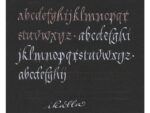 abcdefghilmnopqr
stuvwxyz · abcdefghi
jklmnopqrstuvwxyz ·
abcdefghij